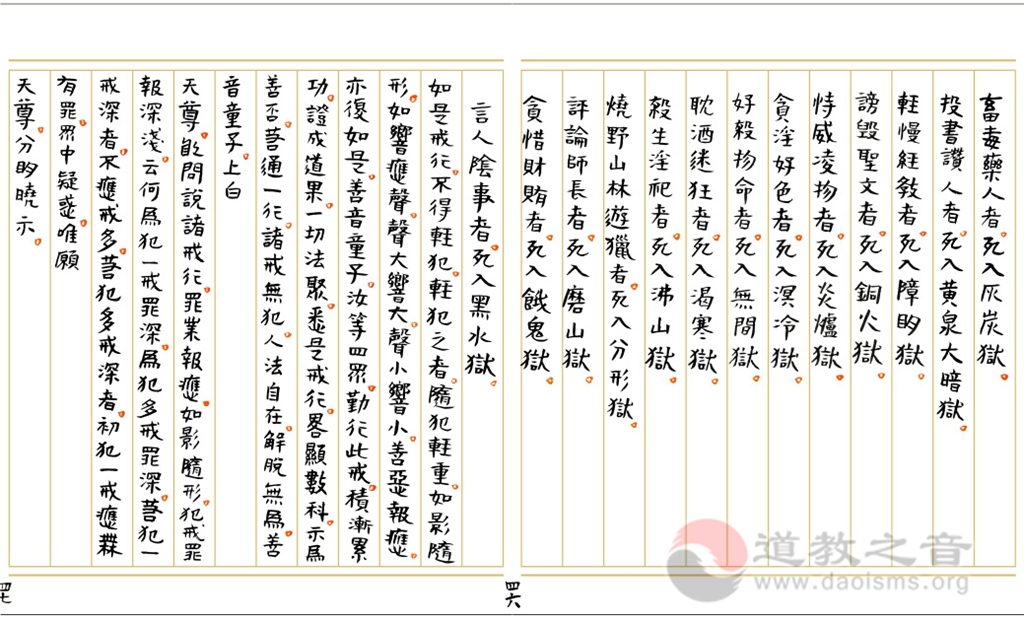 畜毒藥人者。死入灰炭獄。
投書讚人者。死入黄泉大暗獄。
輕慢經教者。死入障明獄。
謗毀聖文者。死入銅火獄。
恃威凌物者。死入炎爐獄。
貪淫好色者。死入溟冷獄。
好殺物命者。死入無間獄。
耽酒迷狂者。死入渴寒獄。
殺生淫祀者。死入沸山獄。
燒野山林遊獵者。死入分形獄。
評論師長者。死入磨山獄。
貪惜財賄者。死入餓鬼獄。
四六
言人陰事者。死入黑水獄。
如是戒行。不得輕犯。輕犯之者。隨犯輕重。如影隨
形。如響應聲。聲大響大。聲小響小。善惡報應。
亦復如是。善音童子。汝等四眾。勤行此戒。積漸累
功。證成道果。一切法聚。悉是戒行。畧顯數科。示爲
善否。若通一行。諸戒無犯。人法自在。解脫無爲。善
音童子。上白
天尊。飢問說諸戒行。罪業報應。如影隨形。犯戒罪
報深淺。云何爲犯一戒罪深。爲犯多戒罪深。若犯一
戒深者。不應戒多。若犯多戒深者。初犯一戒。應無
有罪。眾中疑惑。唯願
天尊。分明曉示。
四七
道教之音
www.daoisms.org